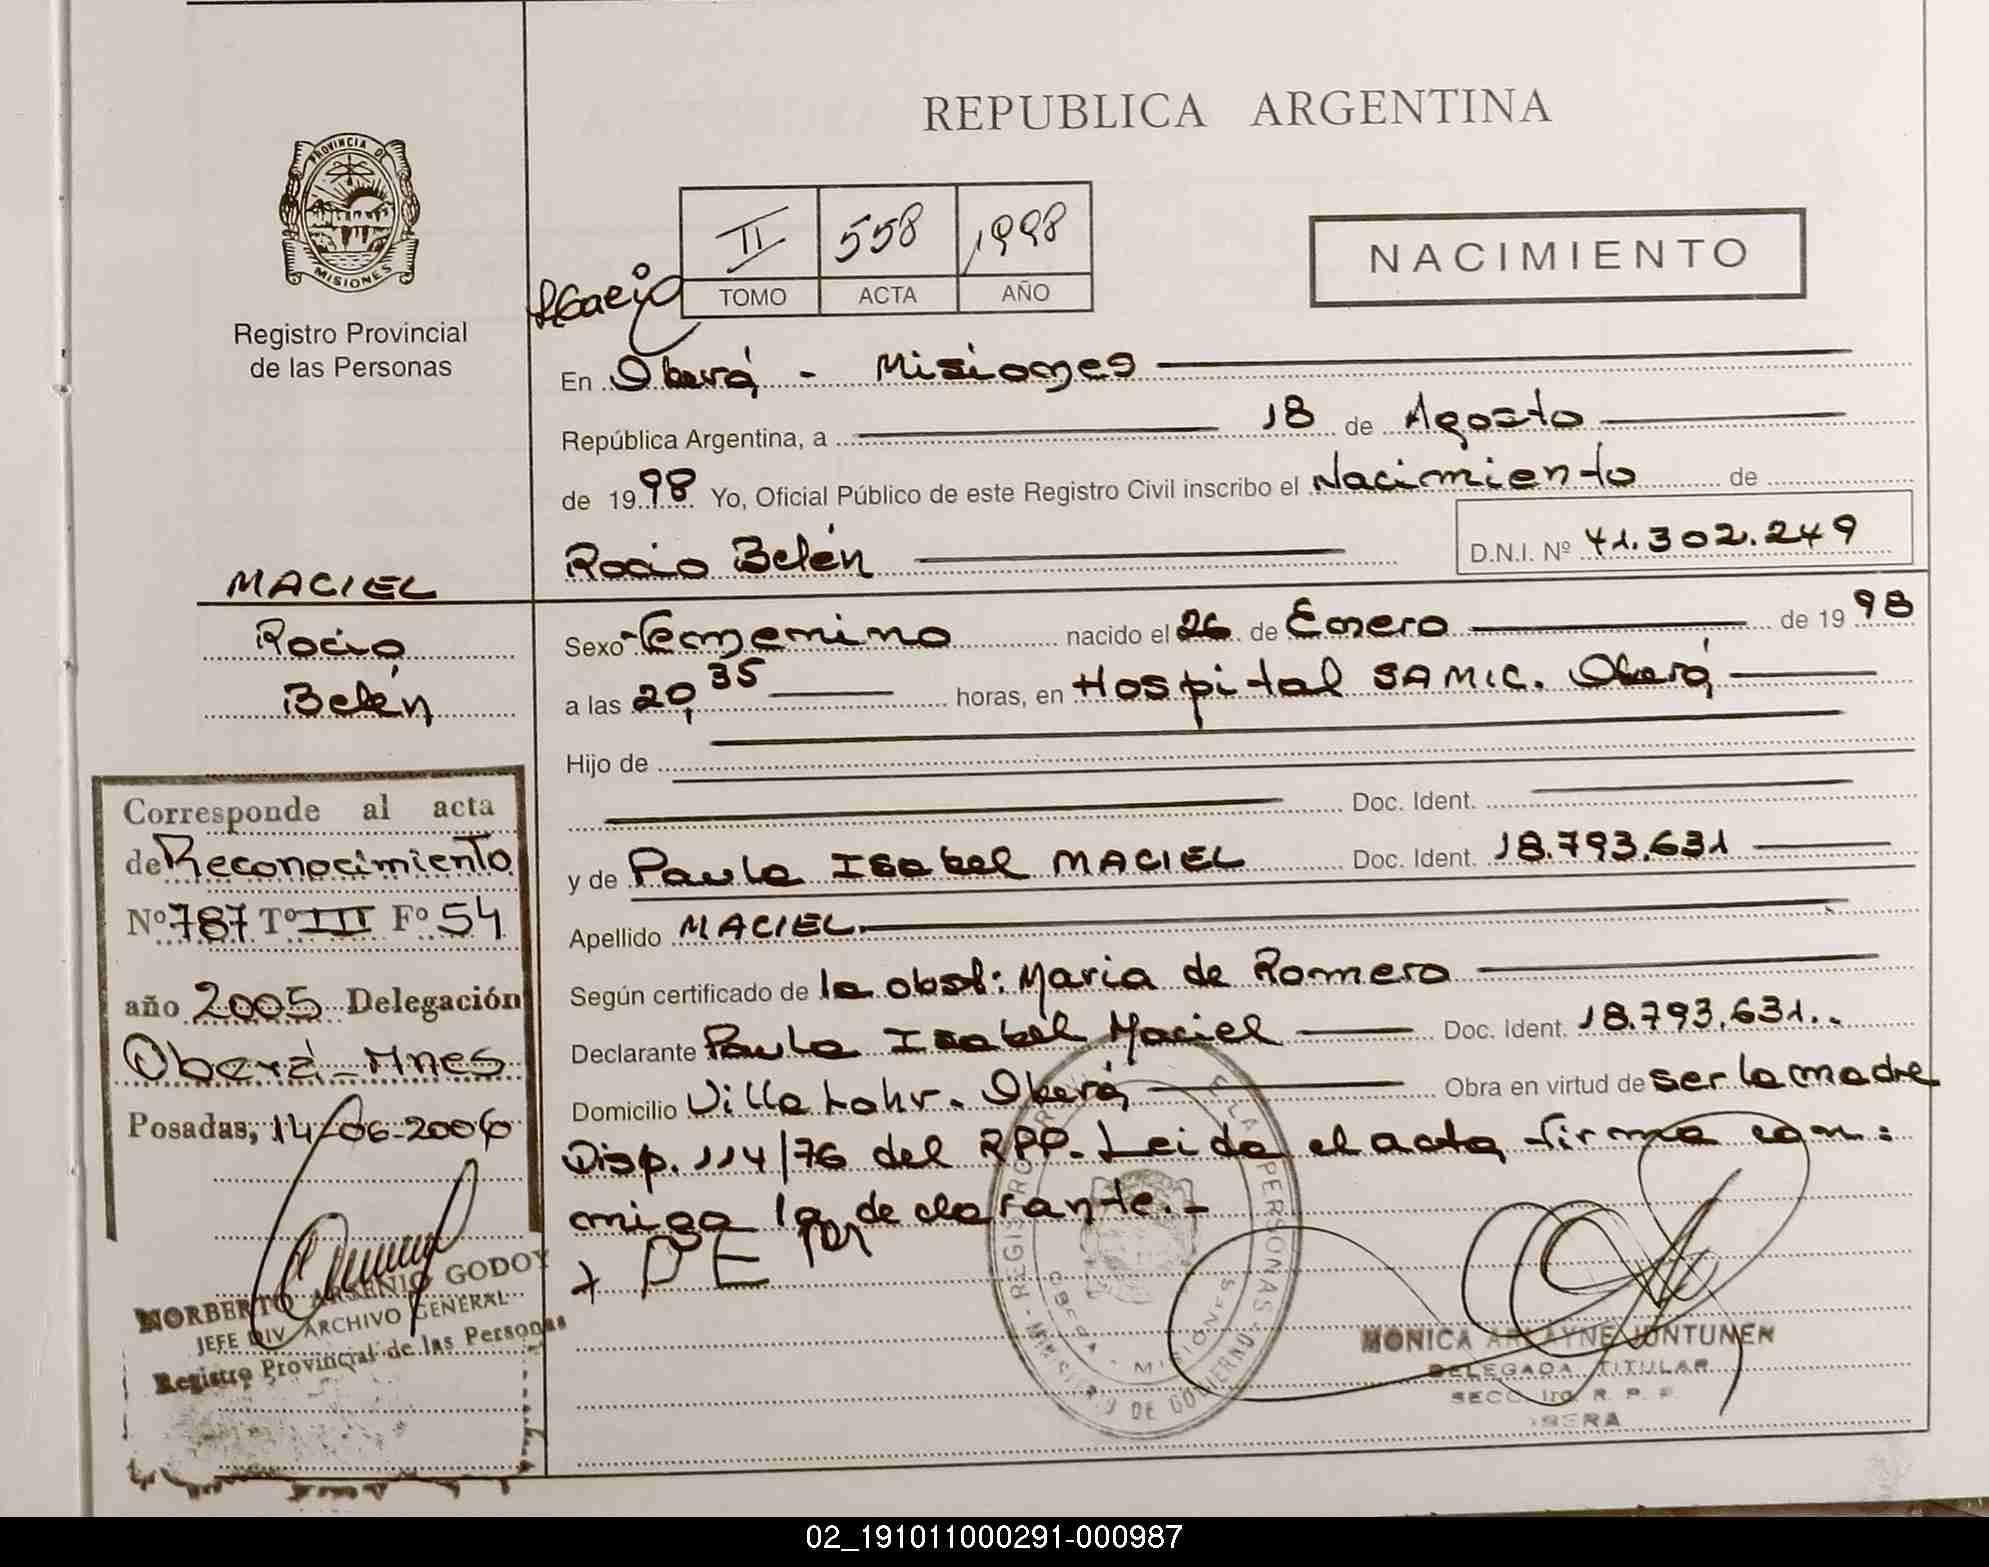 REPUBLICA ARGENTINA
PROVINCIA DE
MISIONES
Registro Provincial
de las Personas
II 558 1998
TOMO ACTA AÑO
NACIMIENTO
En Oberá - Misiones
República Argentina, a 18 de Agosto
de 1998 Yo, Oficial Público de este Registro Civil inscribo el Nacimiento de
Rocio Belén D.N.I. Nº 41.302.249
MACIEL
Rocio
Belén
Sexo Femenino nacido el 26 de Enero de 1998
a las 20,35 horas, en Hospital SAMIC. Oberá
Hijo de
Doc. Ident.
y de Paula Isabel MACIEL Doc. Ident. 18.793.631
Apellido MACIEL.
Según certificado de la obst: Maria de Romero
Declarante Paula Isabel Maciel Doc. Ident. 18.793.631..
Domicilio Villa Lohr. Oberá Obra en virtud de ser la madre
Disp. 114/76 del RPP. Leida el acta firma con:
migo la declarante.-
Corresponde al acta
de Reconocimiento
Nº 787 Tº III Fº 54
año 2005 Delegación
Oberá - Mnes
Posadas, 14-06-2006
NORBERTO ARSENIO GODOY
JEFE DIV. ARCHIVO GENERAL
Registro Provincial de las Personas
REGISTRO DE LAS PERSONAS
MINISTERIO DE GOBIERNO
OBERA - MISIONES
MONICA ARLAYNE JUNTUNEN
DELEGADA TITULAR
SECC. 1ra. R. P. P.
OBERA
02_191011000291-000987